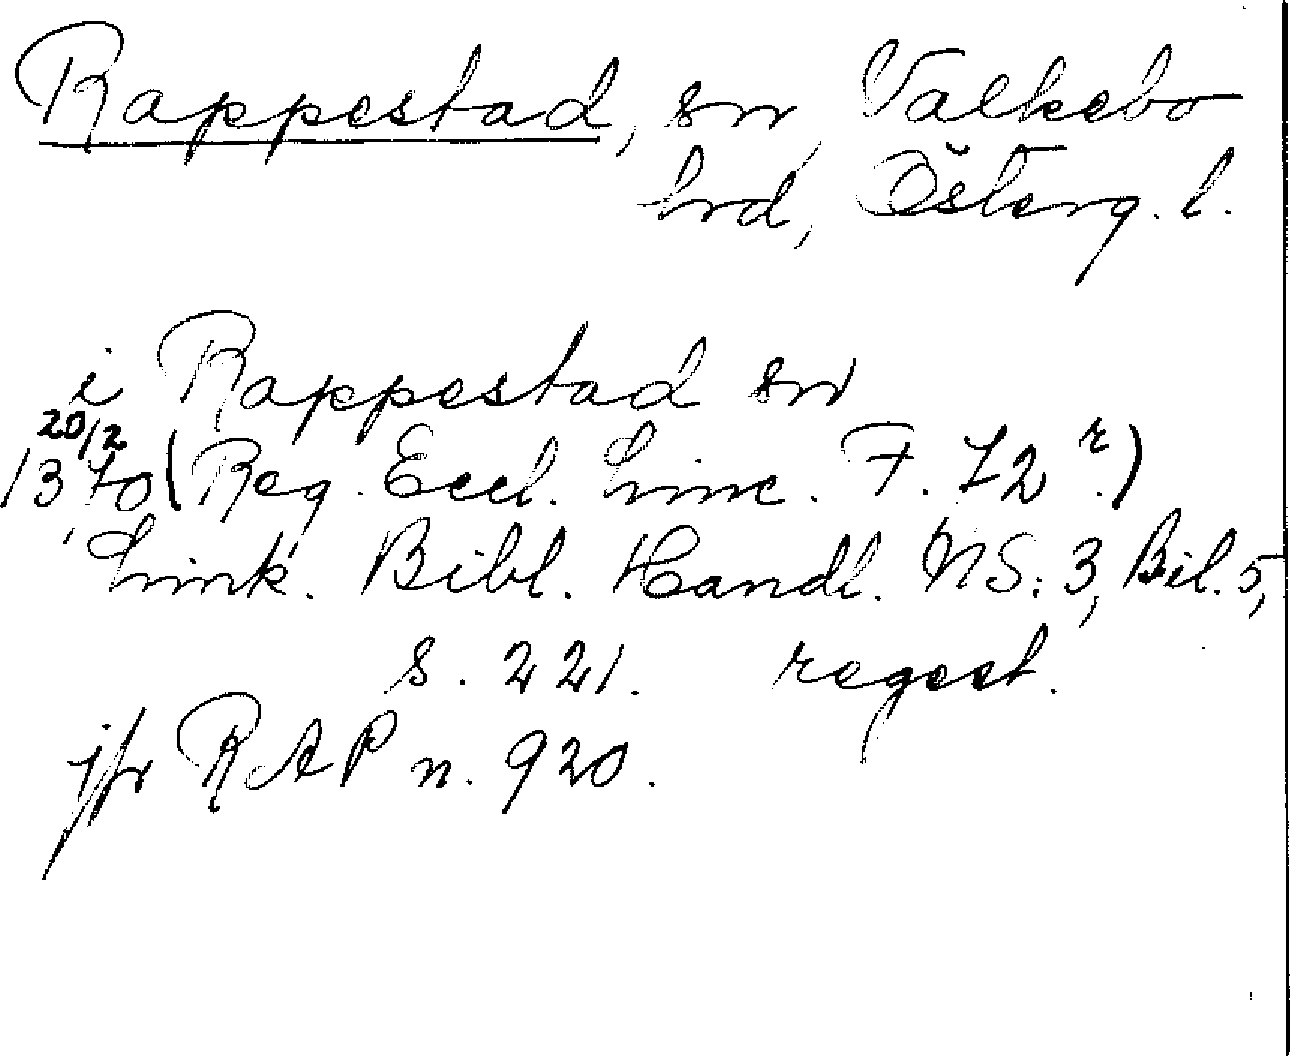 Rappestad, sn, Valkebo
hrd, Österg. l.
i Rappestad sn
20/2
1370 (Reg. Eccl. Linc. F. 72 r.)
Link. Bibl. Handl. NS: 3, Bil. 5,
s. 221. regest.
jfr RAP n. 920.